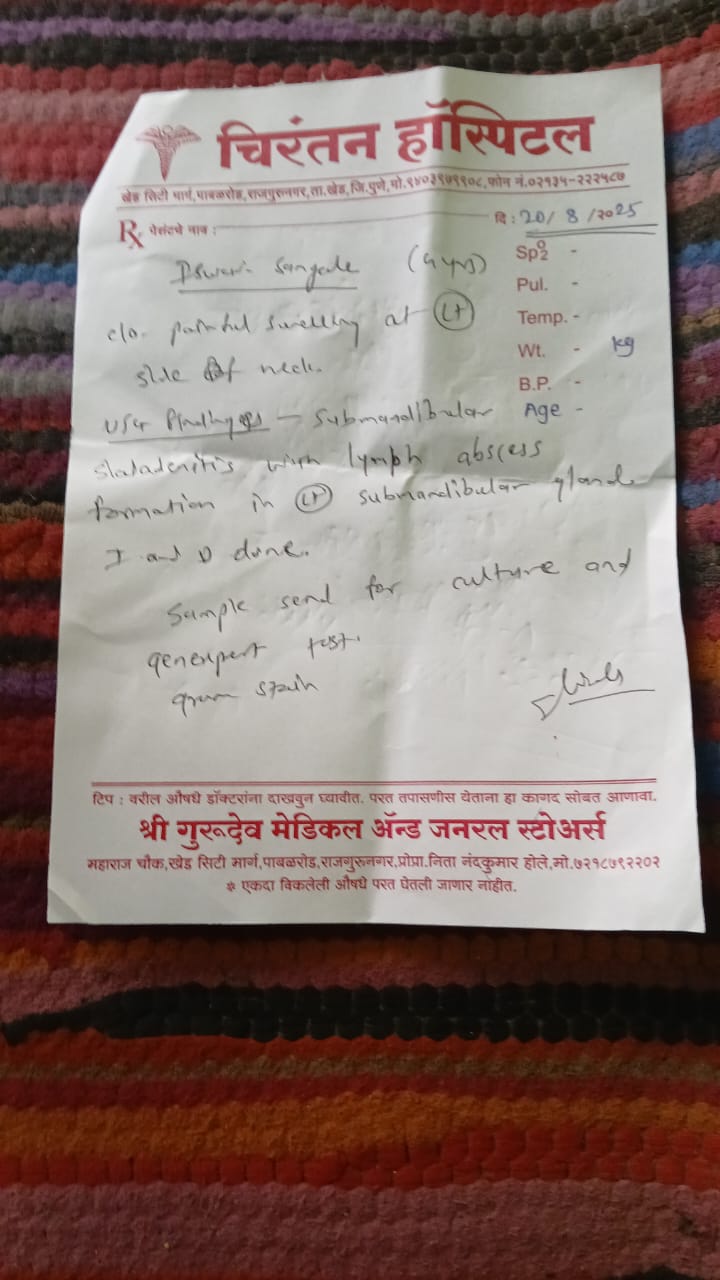 चिरंतन हॉस्पिटल
खेड सिटी मार्ग,पाबळरोड,राजगुरुनगर,ता.खेड,जि.पुणे,मो.९४०३९७९९०८,फोन नं.०२१३५-२२२५८७
दि : 20/8/2025
Rx पेशंटचे नाव :
Sangade (4 yrs)
Spo2 -
Pul. -
Temp. -
Wt. - kg
B.P. -
Age -
c/o. painful swelling at Lt
side of neck.
USG Findings – Submandibular
Sialadenitis with lymph abscess
formation in Lt submandibular gland
I and D done.
Sample send for culture and
genexpert test.
gram stain
टिप : वरील औषधे डॉक्टरांना दाखवुन घ्यावीत. परत तपासणीस येताना हा कागद सोबत आणावा.
श्री गुरूदेव मेडिकल ॲन्ड जनरल स्टोअर्स
महाराज चौक,खेड सिटी मार्ग,पाबळरोड,राजगुरुनगर,प्रोप्रा.निता नंदकुमार होले,मो.७२१८७९२२०२
* एकदा विकलेली औषधे परत घेतली जाणार नाहीत.